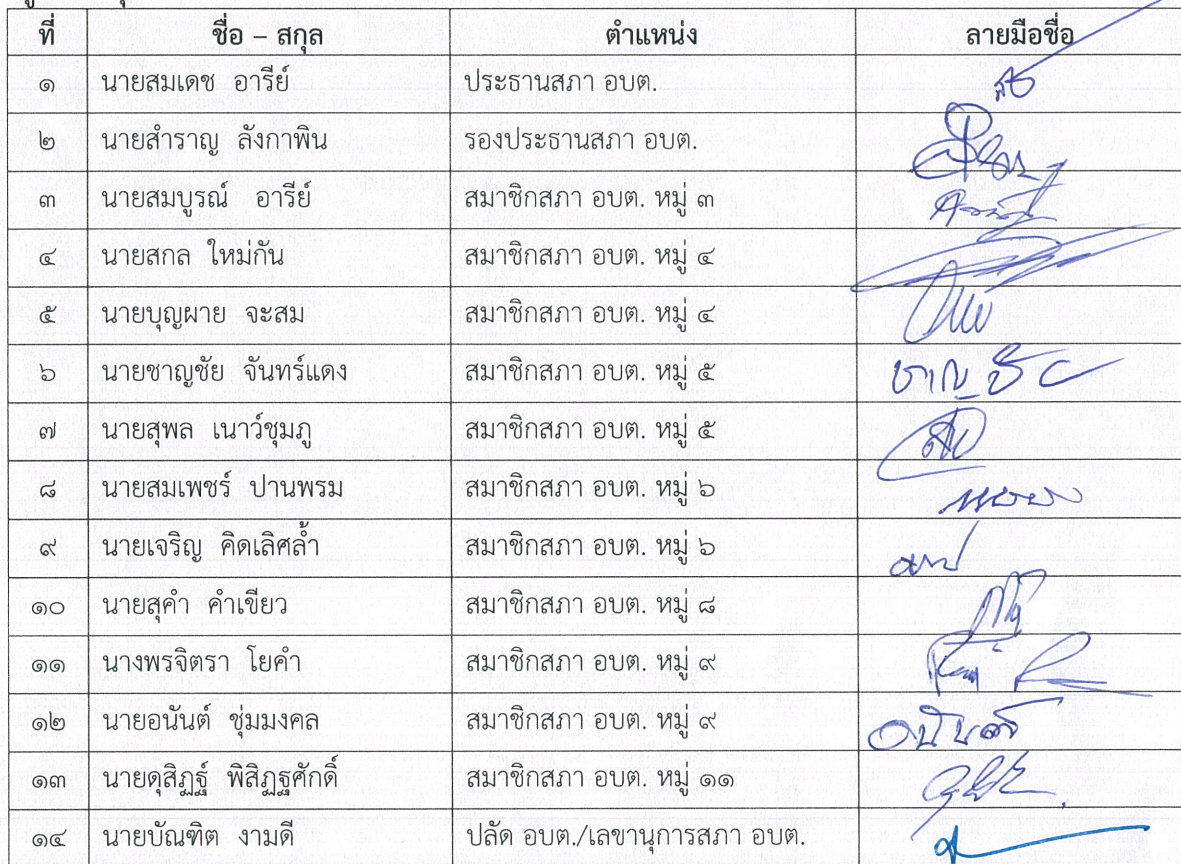 ที่ ชื่อ – สกุล ตำแหน่ง ลายมือชื่อ
๑ นายสมเดช อารีย์ ประธานสภา อบต.
๒ นายสำราญ ลังกาพิน รองประธานสภา อบต.
๓ นายสมบูรณ์ อารีย์ สมาชิกสภา อบต. หมู่ ๓
๔ นายสกล ใหม่กัน สมาชิกสภา อบต. หมู่ ๔
๕ นายบุญผาย จะสม สมาชิกสภา อบต. หมู่ ๔
๖ นายชาญชัย จันทร์แดง สมาชิกสภา อบต. หมู่ ๕ ชาญชัย
๗ นายสุพล เนาว์ชุมภู สมาชิกสภา อบต. หมู่ ๕
๘ นายสมเพชร์ ปานพรม สมาชิกสภา อบต. หมู่ ๖
๙ นายเจริญ คิดเลิศล้ำ สมาชิกสภา อบต. หมู่ ๖
๑๐ นายสุคำ คำเขียว สมาชิกสภา อบต. หมู่ ๘
๑๑ นางพรจิตรา โยคำ สมาชิกสภา อบต. หมู่ ๙
๑๒ นายอนันต์ ชุ่มมงคล สมาชิกสภา อบต. หมู่ ๙ อนันต์
๑๓ นายดุสิฏฐ์ พิสิฏฐศักดิ์ สมาชิกสภา อบต. หมู่ ๑๑
๑๔ นายบัณฑิต งามดี ปลัด อบต./เลขานุการสภา อบต.